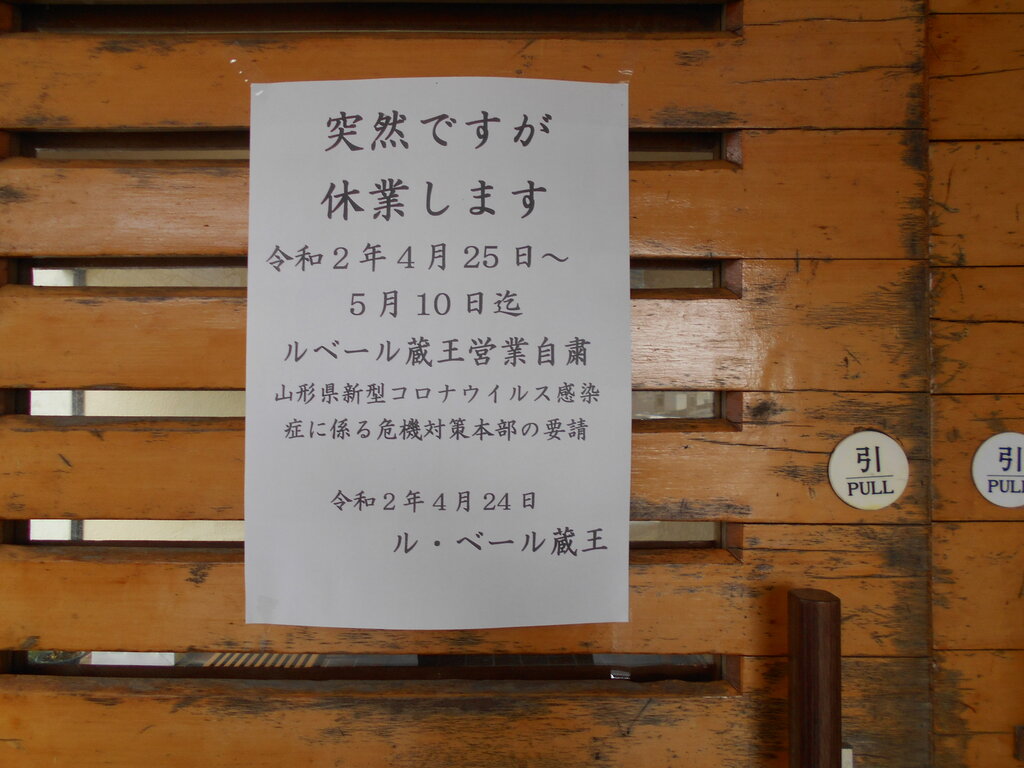 突然ですが
休業します
令和2年4月25日～
5月10日迄
ルベール蔵王営業自粛
山形県新型コロナウイルス感染
症に係る危機対策本部の要請
令和2年4月24日
ル・ベール蔵王
引
PULL
引
PULL